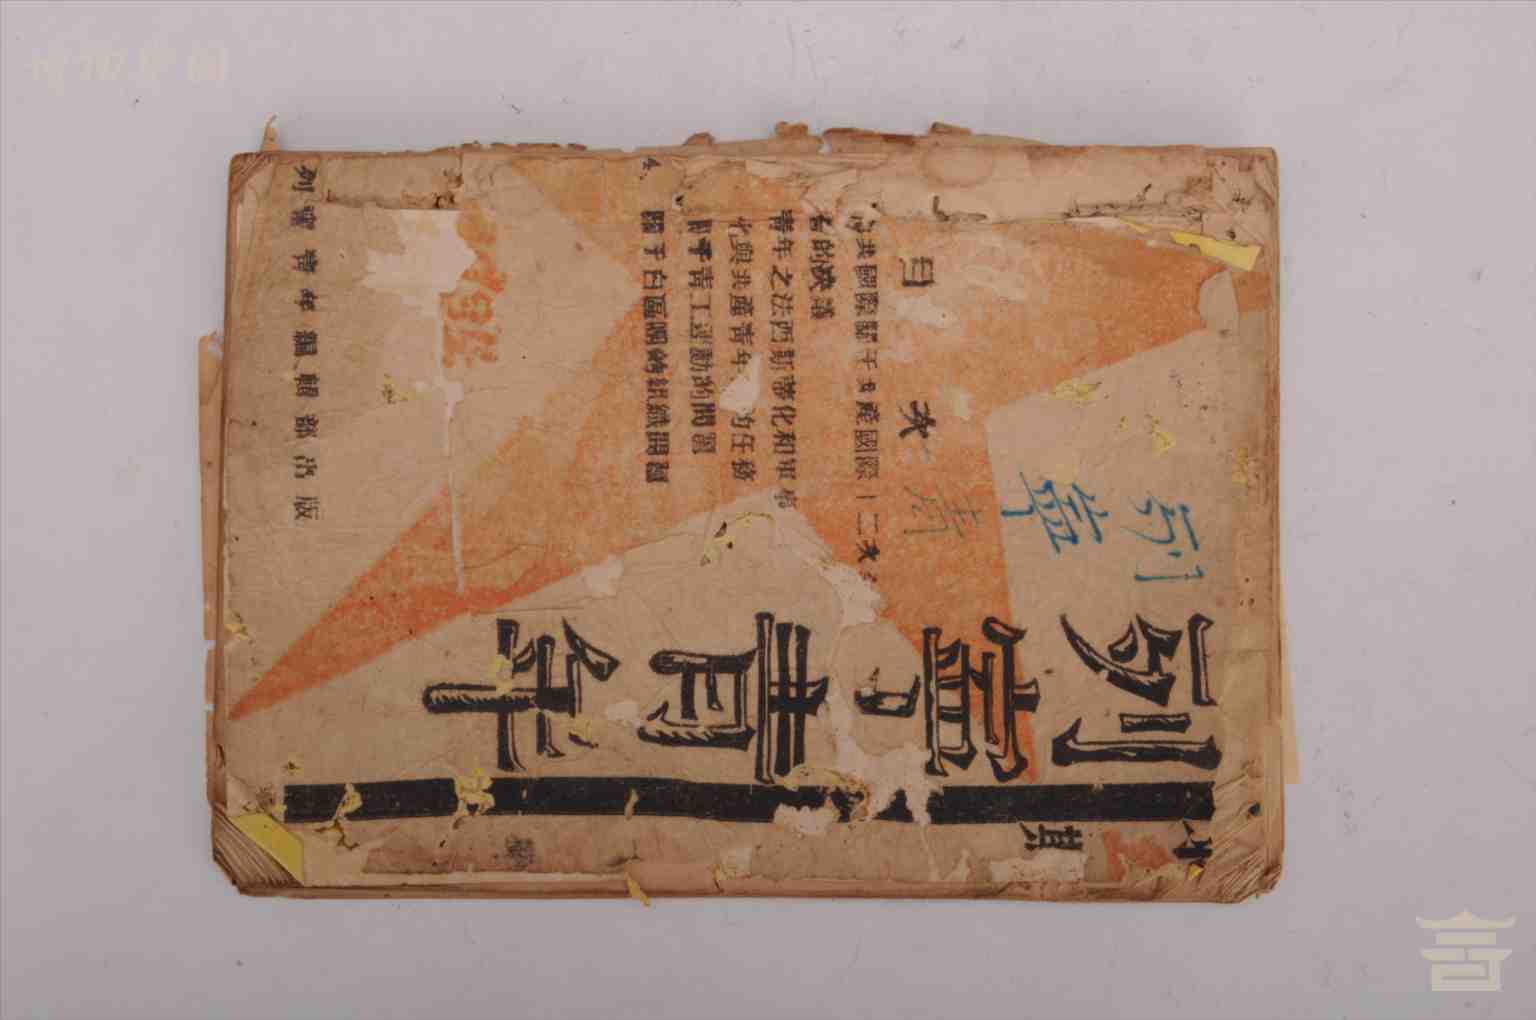 期
列寧青年
列寧
青
目次
共國際關于共產國際十二次
的決議
青年之法西斯蒂化和軍事
化與共產青年 的任務
關于青工運動的問題
4. 關于白區團的組織問題
列寧青年編輯部出版